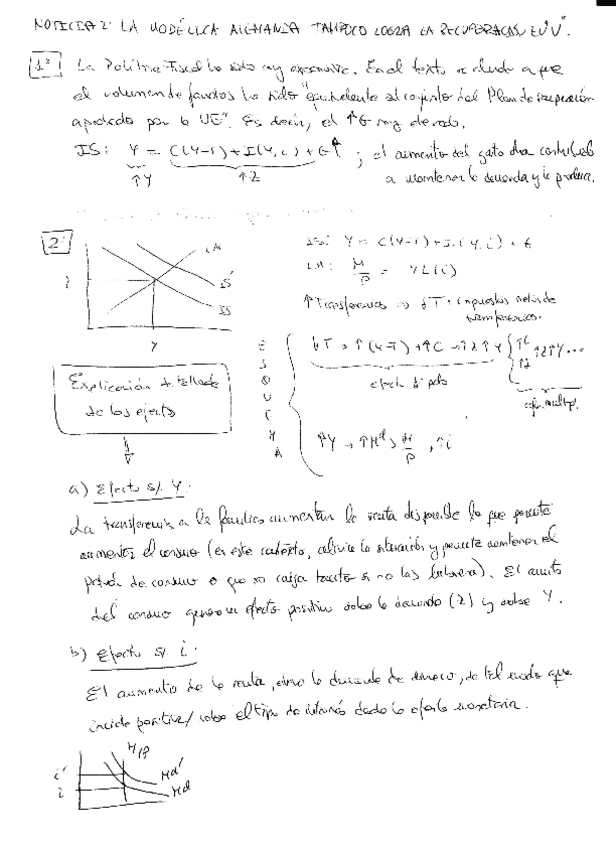 NOTICIA 2: LA MODÉLICA ALEMANIA TAMPOCO LOGRA LA RECUPERACIÓN EN "V".
1º La Política Fiscal ha sido muy expansiva. En el texto se alude a que
el volumen de fondos ha sido "equivalente al conjunto del Plan de recuperación
aprobado por la UE". Es decir, el ↑G muy elevado.
IS: Y = C(Y-T) + I(Y, i) + G↑ ; el aumento del gasto ha contribuido
↑Y ↑Z a mantener la demanda y la produc.
2º
LM
IS'
IS
i
Y
IS: Y = C(Y-T) + I(Y, i) + G
LM: M/P = YL(i)
↑Transferencias → ↓T: impuestos netos de
transferencias.
ESQUEMA
↓T → ↑(Y-T) → ↑C → ↑Z ↑Y { ↑C ↑I ↑Z↑Y...
efecto
efec. multipl.
↑Y → ↑Md > M/P , ↑i
Explicación detallada
de los efectos
a) Efecto s/. Y:
La transferencia a las familias aumentan la renta disponible lo que permite
aumentar el consumo (en este contexto, alivia la situación y permite mantener el
de consumo o que no caiga tanto si no las hubiera). El aumento
del consumo genera un efecto positivo sobre la demanda (Z) y sobre Y.
b) Efecto s/. i:
El aumento de la renta, eleva la demanda de dinero, de tal modo que
incide positiva/ sobre el tipo de interés dada la oferta monetaria.
M/P
i'
i
Md'
Md